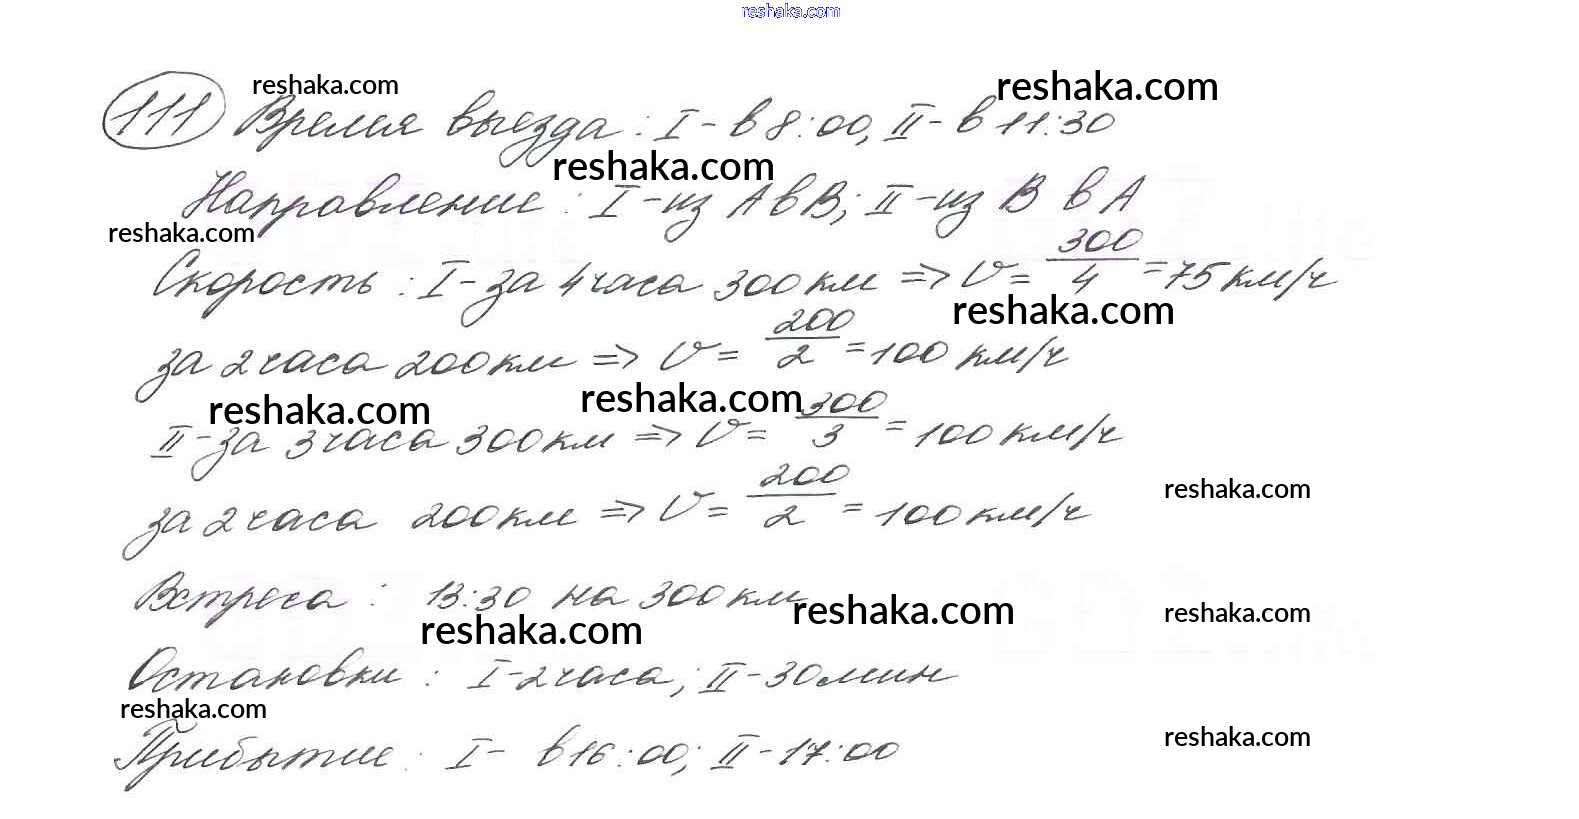 reshaka.com
111 Время выезда: I - в 8:00, II - в 11:30
reshaka.com
reshaka.com
reshaka.com
Направление: I - из А в В; II - из В в А
reshaka.com
Скорость: I - за 4 часа 300 км => V = 300/4 = 75 км/ч
reshaka.com
за 2 часа 200 км => V = 200/2 = 100 км/ч
reshaka.com
reshaka.com
II - за 3 часа 300 км => V = 300/3 = 100 км/ч
reshaka.com
за 2 часа 200 км => V = 200/2 = 100 км/ч
Встреча: 13:30 на 300 км
reshaka.com
reshaka.com
reshaka.com
Остановки: I - 2 часа; II - 30 мин
reshaka.com
reshaka.com
Прибытие: I - в 16:00; II - 17:00